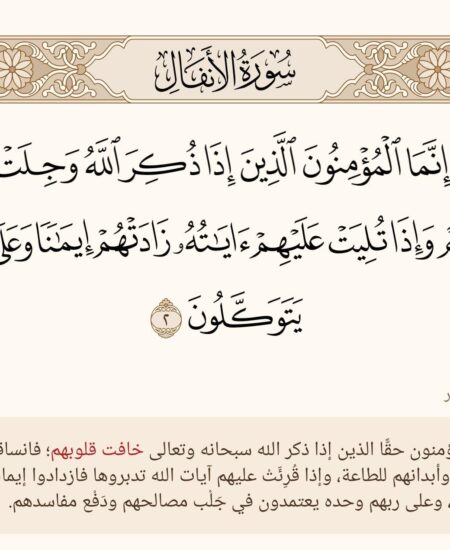 سُورَةُ الأَنفَالِ
إِنَّمَا ٱلْمُؤْمِنُونَ ٱلَّذِينَ إِذَا ذُكِرَ ٱللَّهُ وَجِلَتْ
وَإِذَا تُلِيَتْ عَلَيْهِمْ ءَايَـٰتُهُۥ زَادَتْهُمْ إِيمَـٰنًا وَعَلَىٰ
يَتَوَكَّلُونَ ٢
حقًّا الذين إذا ذكر الله سبحانه وتعالى خافت قلوبهم؛
وأبدانهم للطاعة، وإذا قُرِئَتْ عليهم آيات الله تدبروها فازدادوا
، وعلى ربهم وحده يعتمدون في جَلْب مصالحهم ودَفْع مفاسدهم.